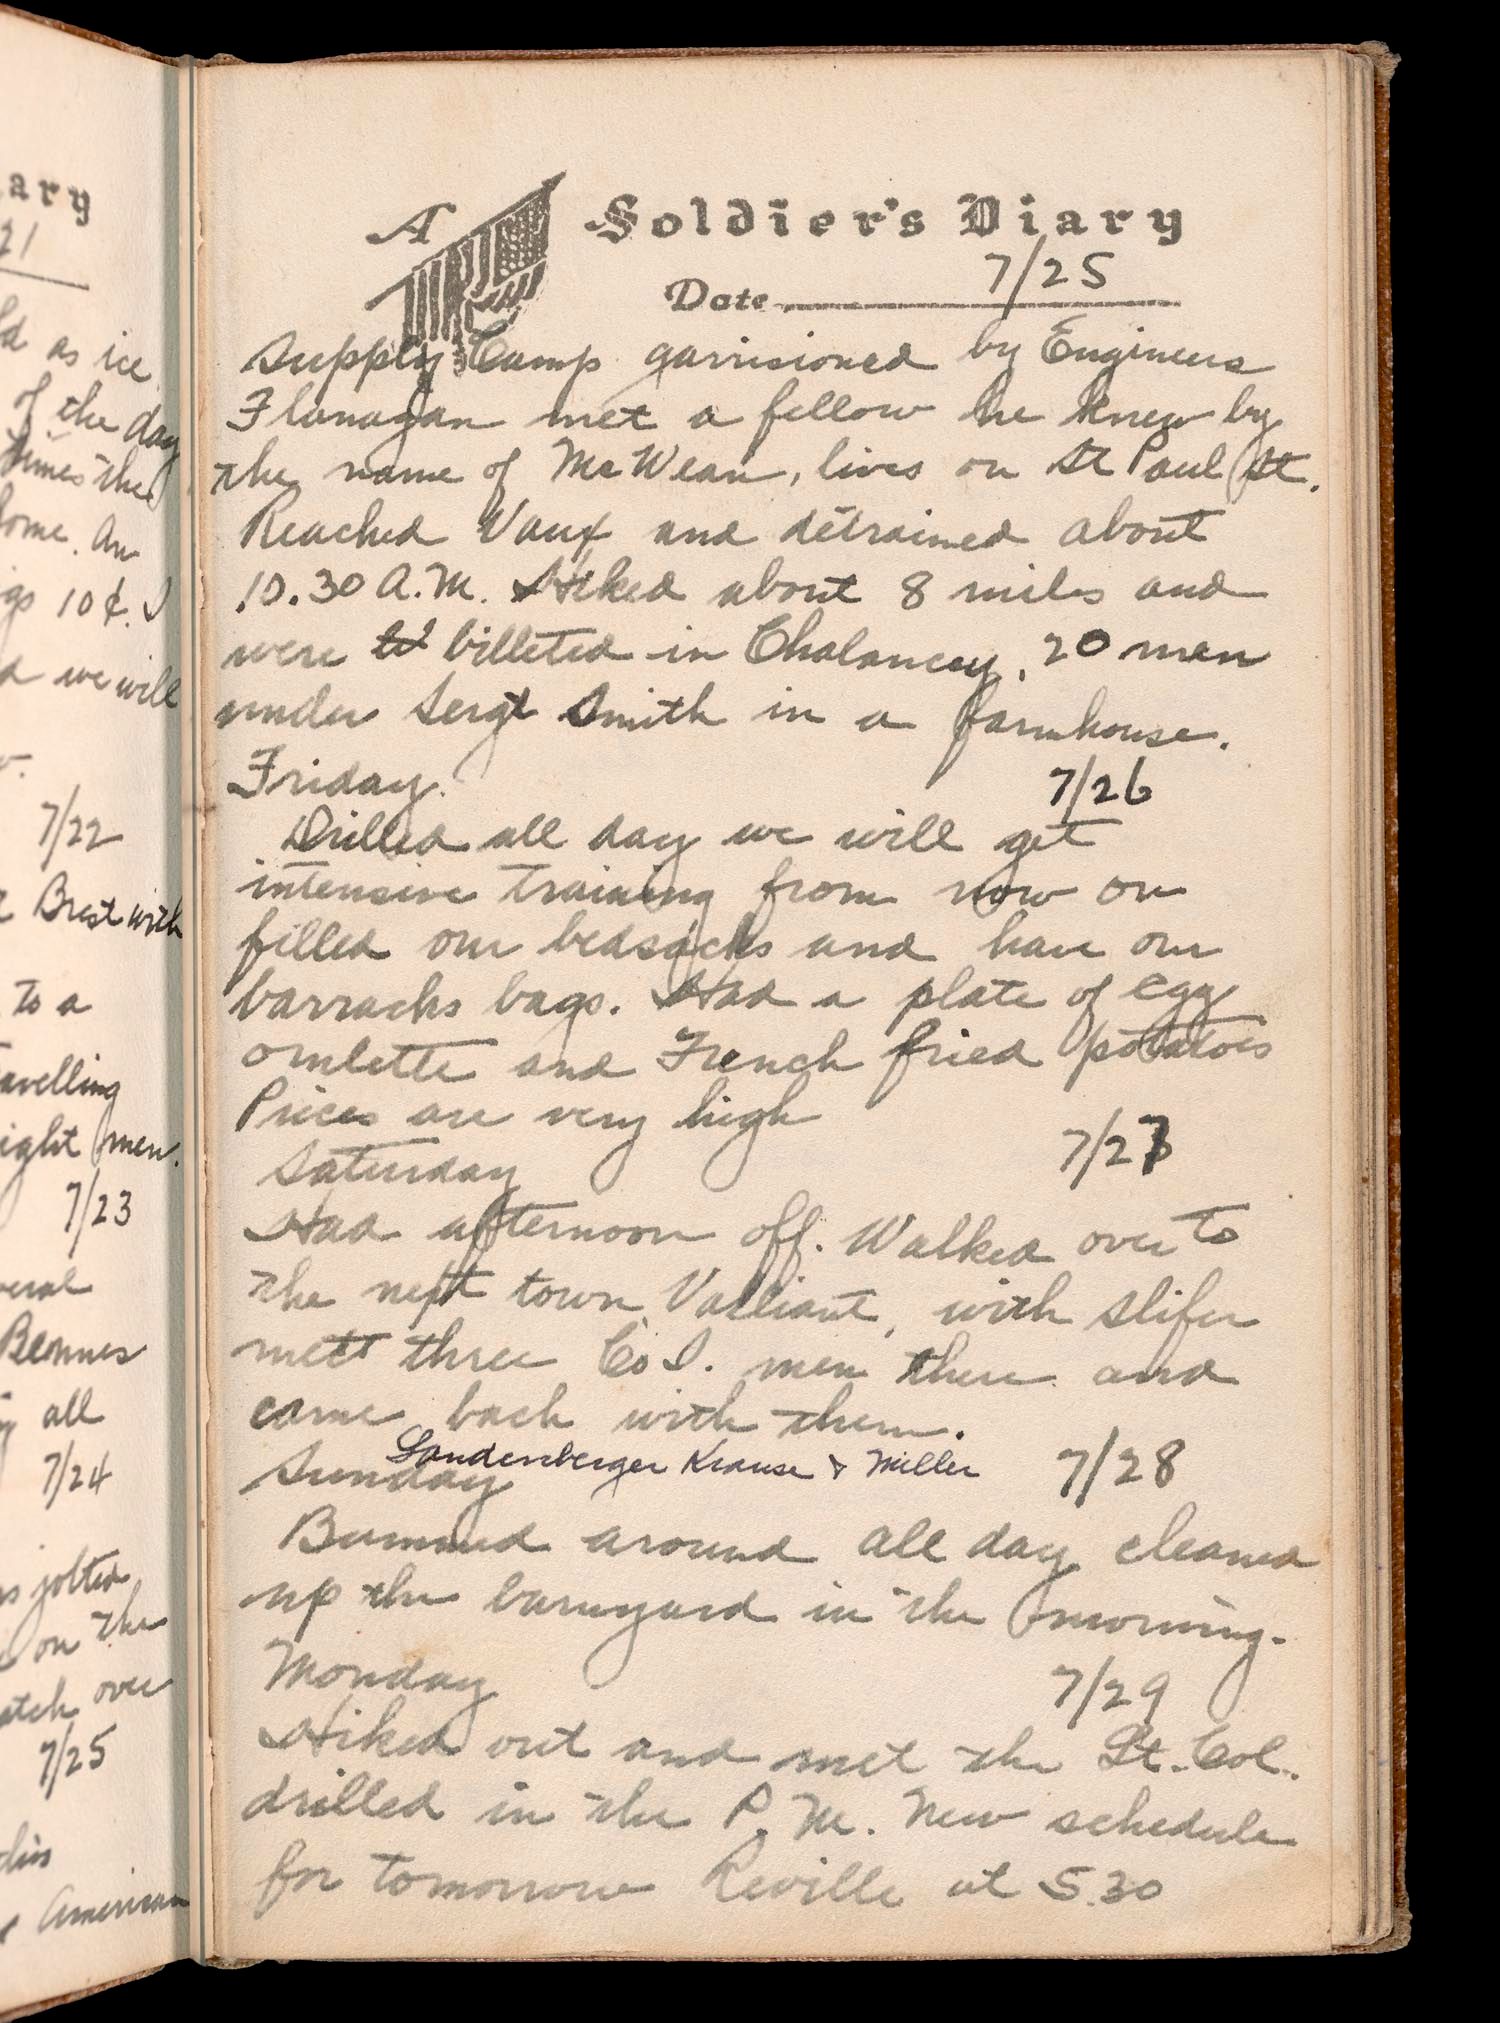 ary
21
ld as ice
of the day
times the
home. An
gs 10¢. I
d we will
7/22
Brest with
to a
avelling
ight men.
7/23
veral
Bennes
all
7/24
s jolted
on the
atch over
7/25
this
American
A Soldier's Diary
Date 7/25
Supply Camp garrisioned by Engineers
Flanagan met a fellow he knew by
the name of McWean, lives on St Paul St.
Reached Vaux and detrained about
10.30 A.M. Hiked about 8 miles and
were billeted in Chalancey. 20 men
under Sergt Smith in a farmhouse.
Friday. 7/26
Drilled all day we will get
intensive training from now on
filled our bedsacks and have our
barracks bags. Had a plate of egg
omlette and French fried potatoes
Prices are very high
Saturday 7/27
Had afternoon off. Walked over to
the next town, Valliant, with Slifer
mett three Co I. men there and
came back with them.
Landenberger Krause & Miller
Sunday 7/28
Bummed around all day cleaned
up the barnyard in the morning.
Monday 7/29
Hiked out and met the Lt. Col.
drilled in the P.M. New schedule
for tomorrow Reville at 5.30